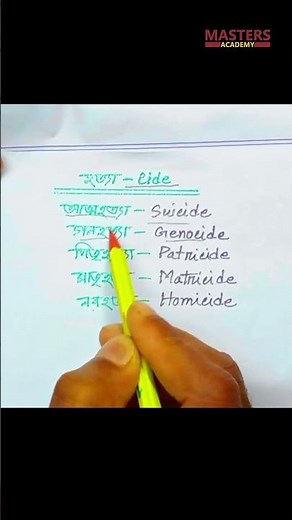 MASTERS
ACADEMY
হত্যা – Cide
আত্মহত্যা – Suicide
গনহত্যা – Genocide
পিতৃহত্যা – Patricide
মাতৃহত্যা – Matricide
নরহত্যা – Homicide